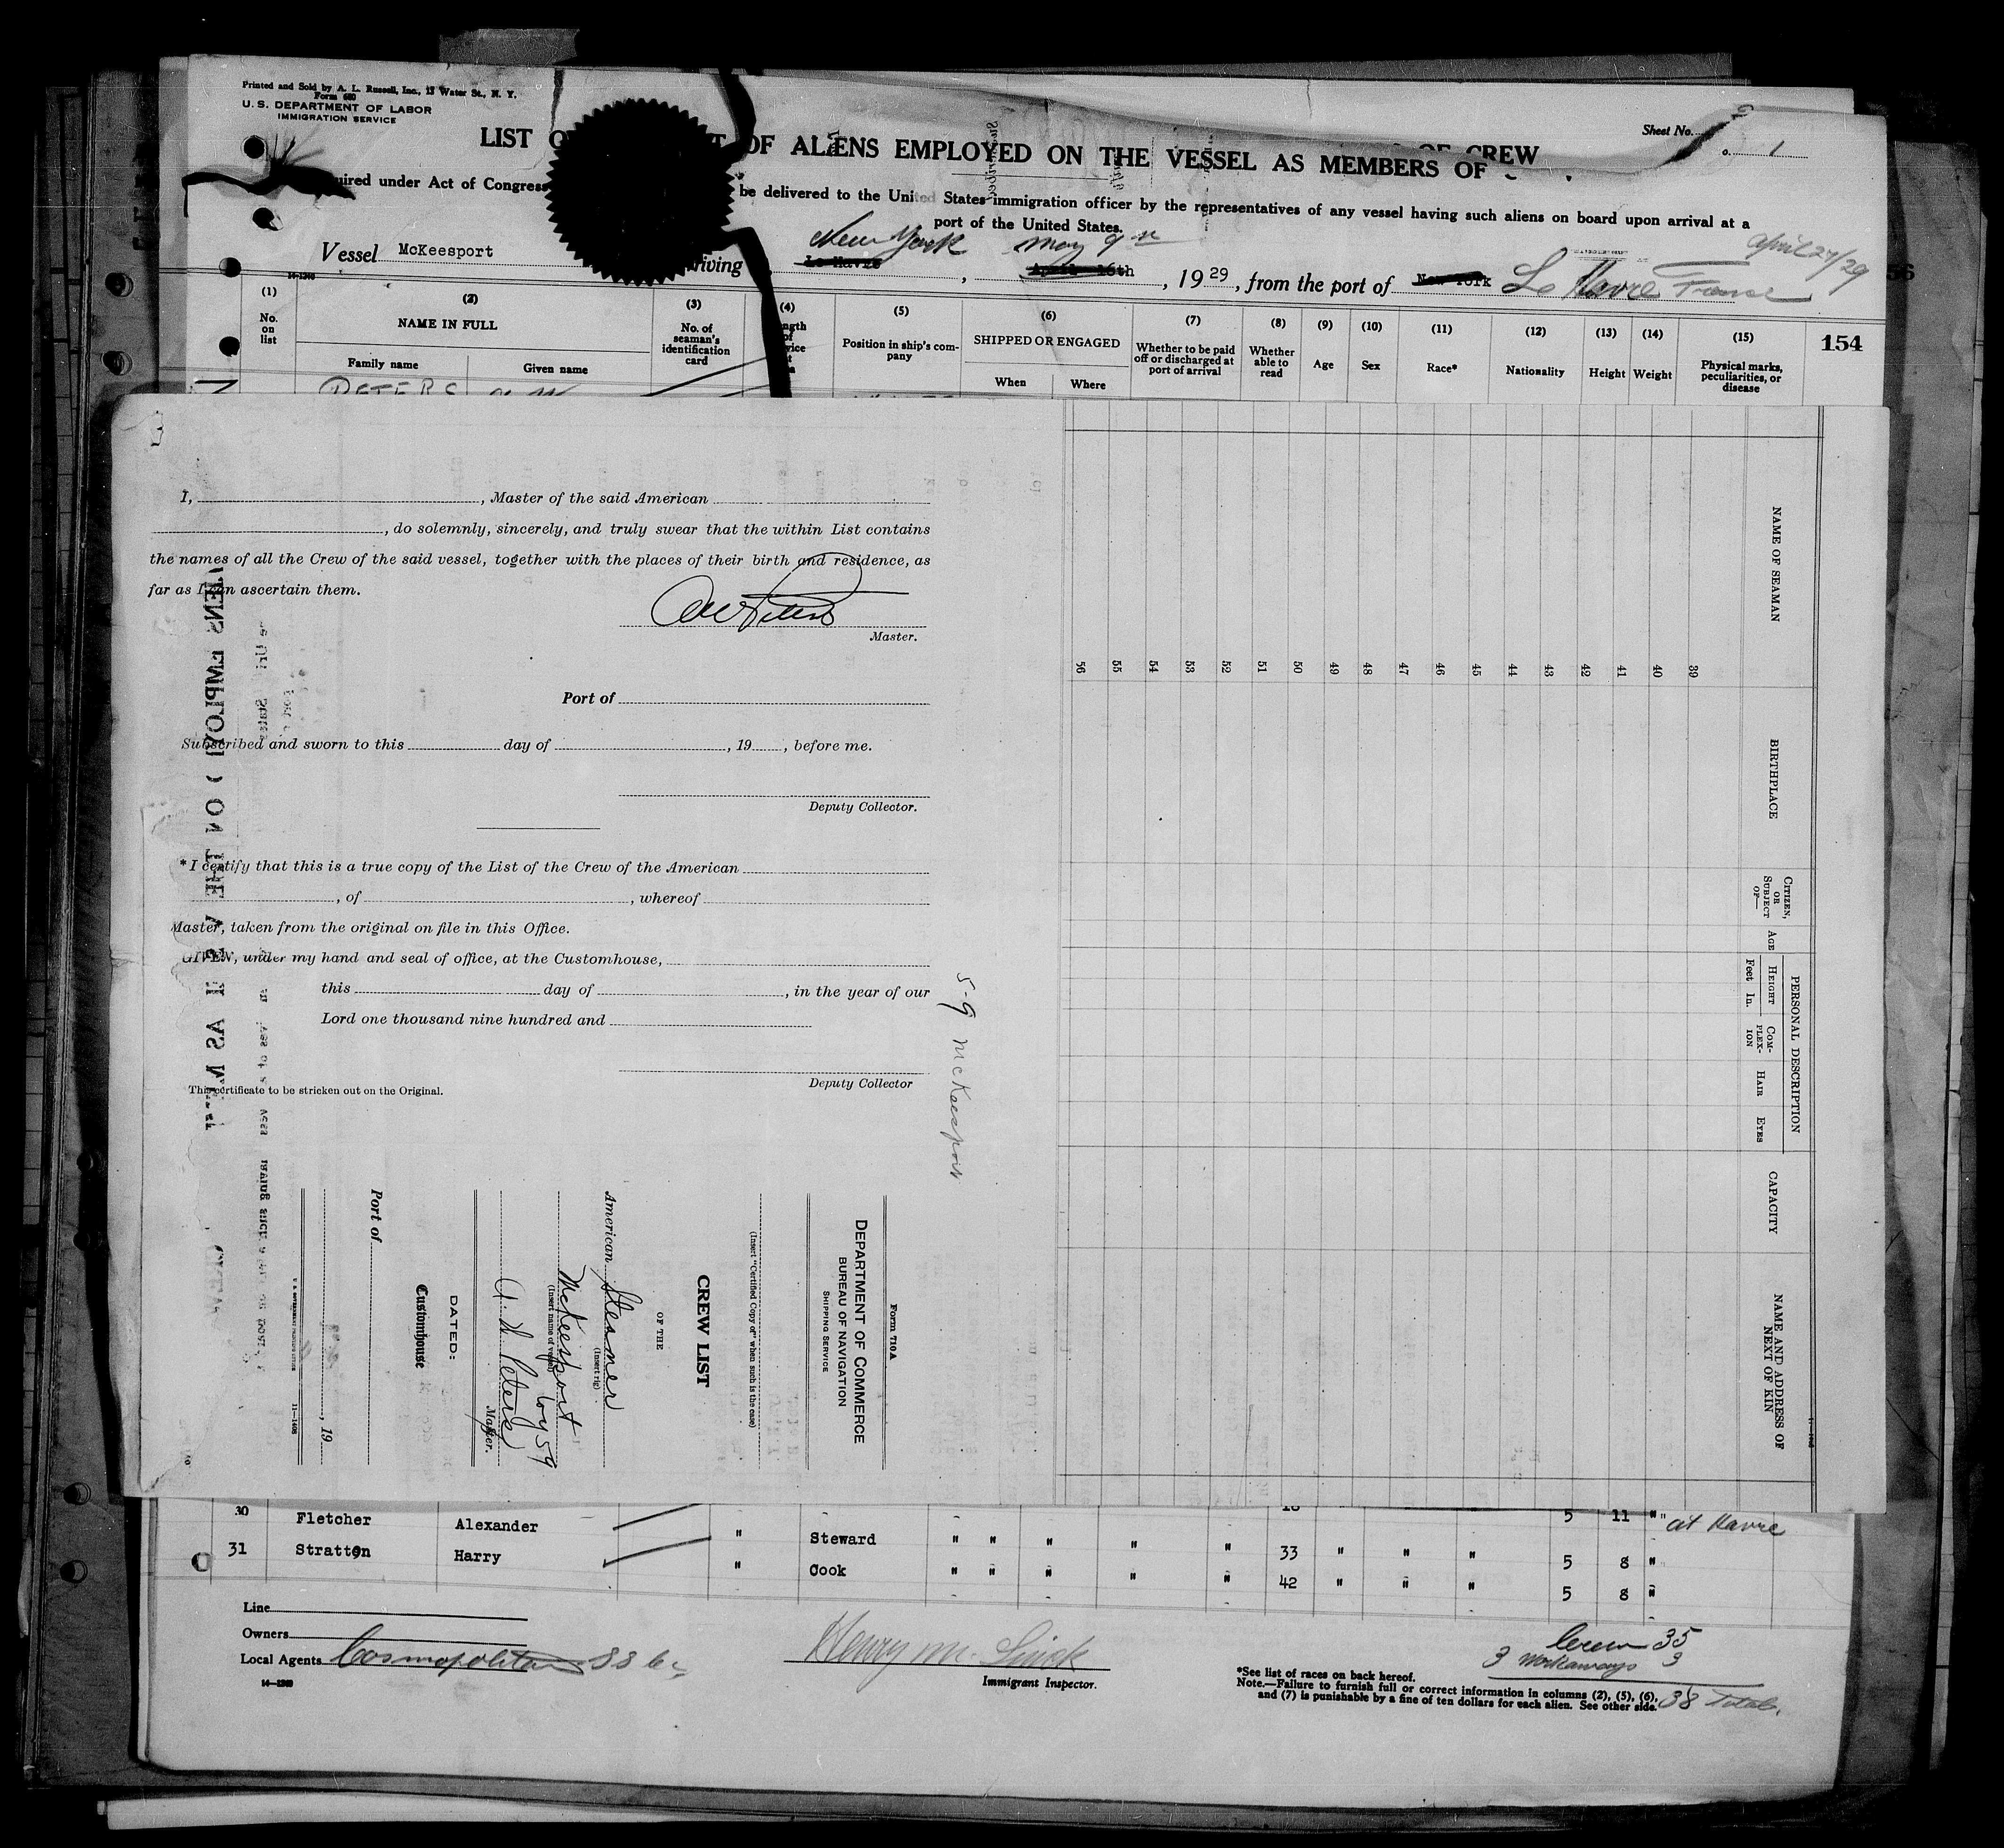 Printed and Sold by A. L. Russell, Inc., 15 Water St., N. Y.
Form 680
U. S. DEPARTMENT OF LABOR
IMMIGRATION SERVICE
Sheet No.
1
LIST OF ALIENS EMPLOYED ON THE VESSEL AS MEMBERS OF CREW
uired under Act of Congress be delivered to the United States immigration officer by the representatives of any vessel having such aliens on board upon arrival at a
port of the United States.
Vessel McKeesport iving New York Le Havre, May 9th April 16th, 1929, from the port of New York Le Havre France April 27/29
14-1240
(1) (2) (3) (4) (5) (6) (7) (8) (9) (10) (11) (12) (13) (14) (15)
No. on list
NAME IN FULL
Family name Given name
No. of seaman's identification card
Position in ship's company
SHIPPED OR ENGAGED
When Where
Whether to be paid off or discharged at port of arrival
Whether able to read
Age
Sex
Race*
Nationality
Height
Weight
Physical marks, peculiarities, or disease
154
56
PETERS A W
3
I, , Master of the said American
, do solemnly, sincerely, and truly swear that the within List contains
the names of all the Crew of the said vessel, together with the places of their birth and residence, as
far as I can ascertain them.
AW Peters
Master.
Port of
Subscribed and sworn to this day of , 19 , before me.
Deputy Collector.
* I certify that this is a true copy of the List of the Crew of the American
, of , whereof
Master, taken from the original on file in this Office.
GIVEN, under my hand and seal of office, at the Customhouse,
this day of , in the year of our
Lord one thousand nine hundred and
Deputy Collector
This certificate to be stricken out on the Original.
5-9 McKeesport
Form 710A
DEPARTMENT OF COMMERCE
BUREAU OF NAVIGATION
SHIPPING SERVICE
(Insert "Certified Copy of" when such is the case)
CREW LIST
OF THE
American Steamer
(Insert rig)
McKeesport
(Insert name of vessel)
A. W. Peters
Master.
DATED:
Customhouse
Port of
, 19
11-1408
NAME OF SEAMAN
BIRTHPLACE
CITIZEN, OR SUBJECT OF—
PERSONAL DESCRIPTION
AGE
HEIGHT
Feet In.
COMPLEXION
HAIR
EYES
CAPACITY
NAME AND ADDRESS OF NEXT OF KIN
39
40
41
42
43
44
45
46
47
48
49
50
51
52
53
54
55
56
30 Fletcher Alexander " Steward " " " " " 33 " " " 5 11 " " at Havre
31 Stratton Harry " Cook " " " " " 42 " " " 5 8 "
5 8 "
Line
Owners
Local Agents Cosmopolitan SS Co
14-1240
Immigrant Inspector.
Crew 35
3 Workaways 3
38 Total.
*See list of races on back hereof.
Note.—Failure to furnish full or correct information in columns (2), (5), (6),
and (7) is punishable by a fine of ten dollars for each alien. See other side.